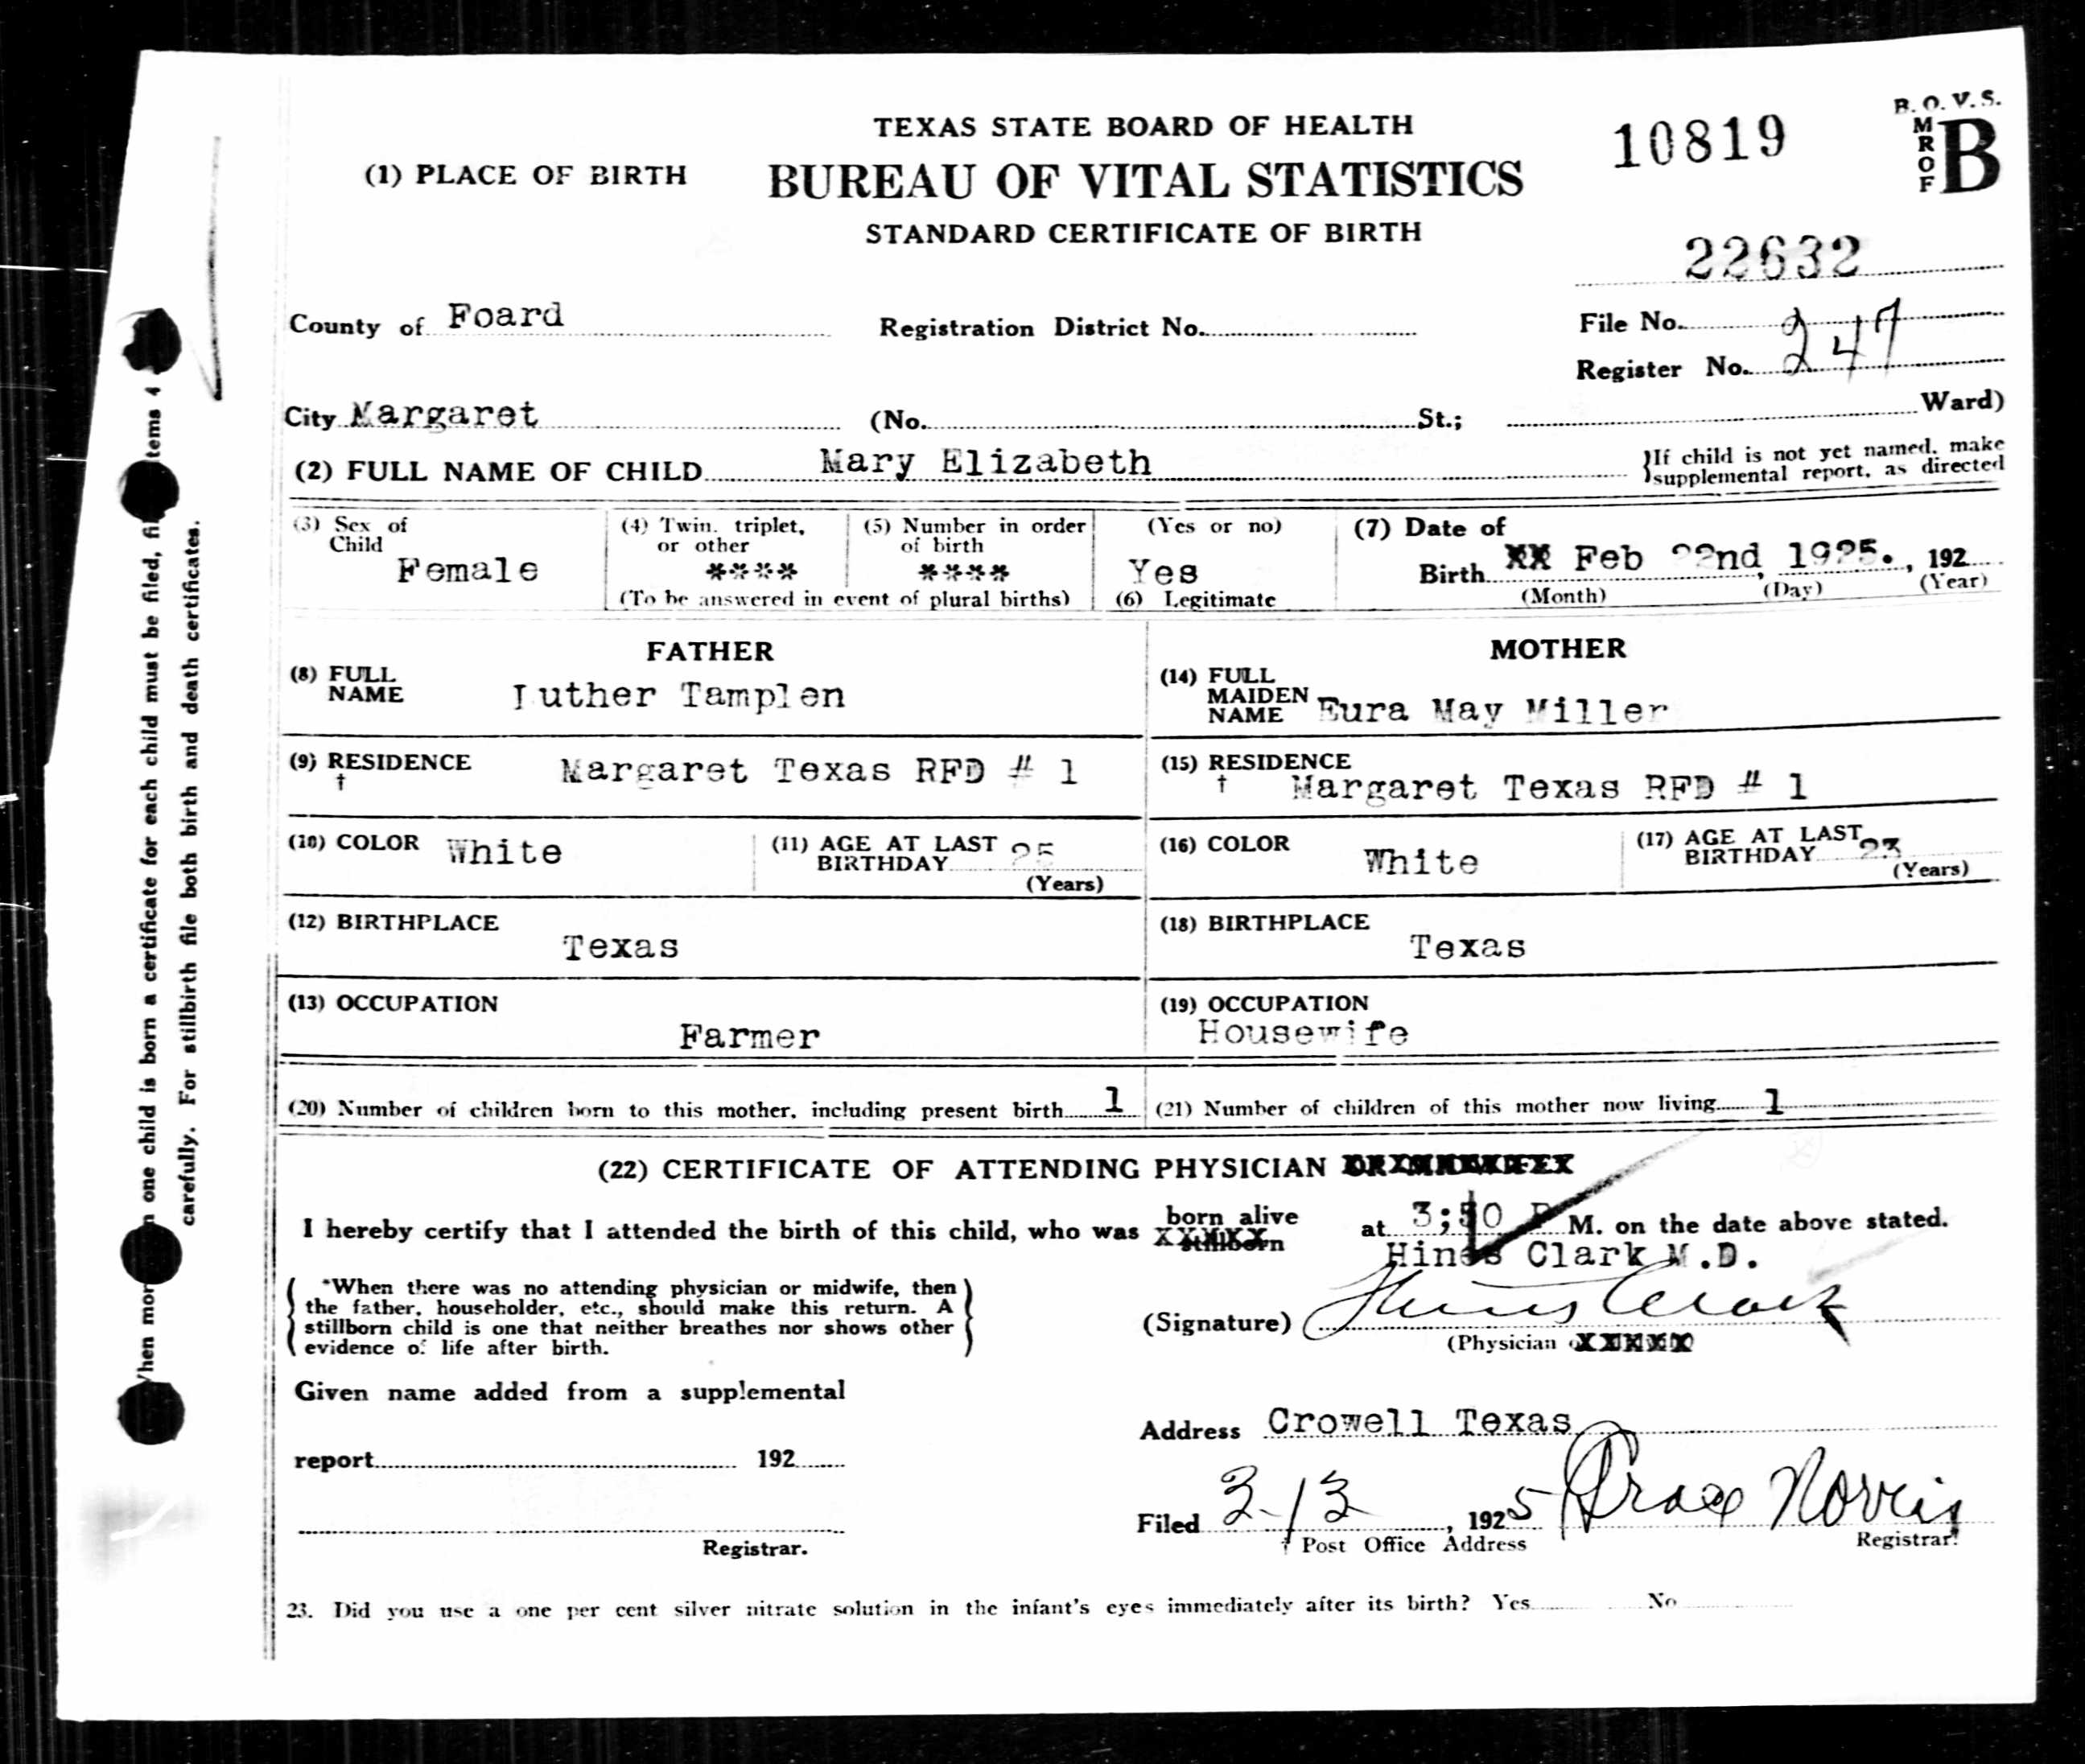 TEXAS STATE BOARD OF HEALTH
10819
B. O. V. S.
FORM
B
(1) PLACE OF BIRTH
BUREAU OF VITAL STATISTICS
STANDARD CERTIFICATE OF BIRTH
22632
County of Foard
Registration District No.
File No.
Register No. 247
City Margaret (No. St.; Ward)
(2) FULL NAME OF CHILD Mary Elizabeth
If child is not yet named, make
supplemental report, as directed
(3) Sex of
Child
Female
(4) Twin, triplet,
or other
****
(5) Number in order
of birth
****
(To be answered in event of plural births)
(Yes or no)
Yes
(6) Legitimate
(7) Date of
Birth XX Feb 22nd 1925. , 192
(Month) (Day) (Year)
FATHER
(8) FULL
NAME
Luther Tamplen
(9) RESIDENCE
†
Margaret Texas RFD # 1
(10) COLOR White
(11) AGE AT LAST
BIRTHDAY 25
(Years)
(12) BIRTHPLACE
Texas
(13) OCCUPATION
Farmer
MOTHER
(14) FULL
MAIDEN
NAME
Eura May Miller
(15) RESIDENCE
†
Margaret Texas RFD # 1
(16) COLOR White
(17) AGE AT LAST
BIRTHDAY 23
(Years)
(18) BIRTHPLACE
Texas
(19) OCCUPATION
Housewife
(20) Number of children born to this mother, including present birth 1
(21) Number of children of this mother now living 1
(22) CERTIFICATE OF ATTENDING PHYSICIAN
I hereby certify that I attended the birth of this child, who was born alive at P M. on the date above stated.
stillborn
Hines Clark M.D.
*When there was no attending physician or midwife, then
the father, householder, etc., should make this return. A
stillborn child is one that neither breathes nor shows other
evidence of life after birth.
(Signature) Hines Clark
(Physician
Given name added from a supplemental
report 192
Registrar.
Address Crowell Texas
Filed 3-13 , 1925 Norris
† Post Office Address
Registrar.
23. Did you use a one per cent silver nitrate solution in the infant's eyes immediately after its birth? Yes No
When more than one child is born a certificate for each child must be filed, items 4
carefully. For stillbirth file both birth and death certificates.